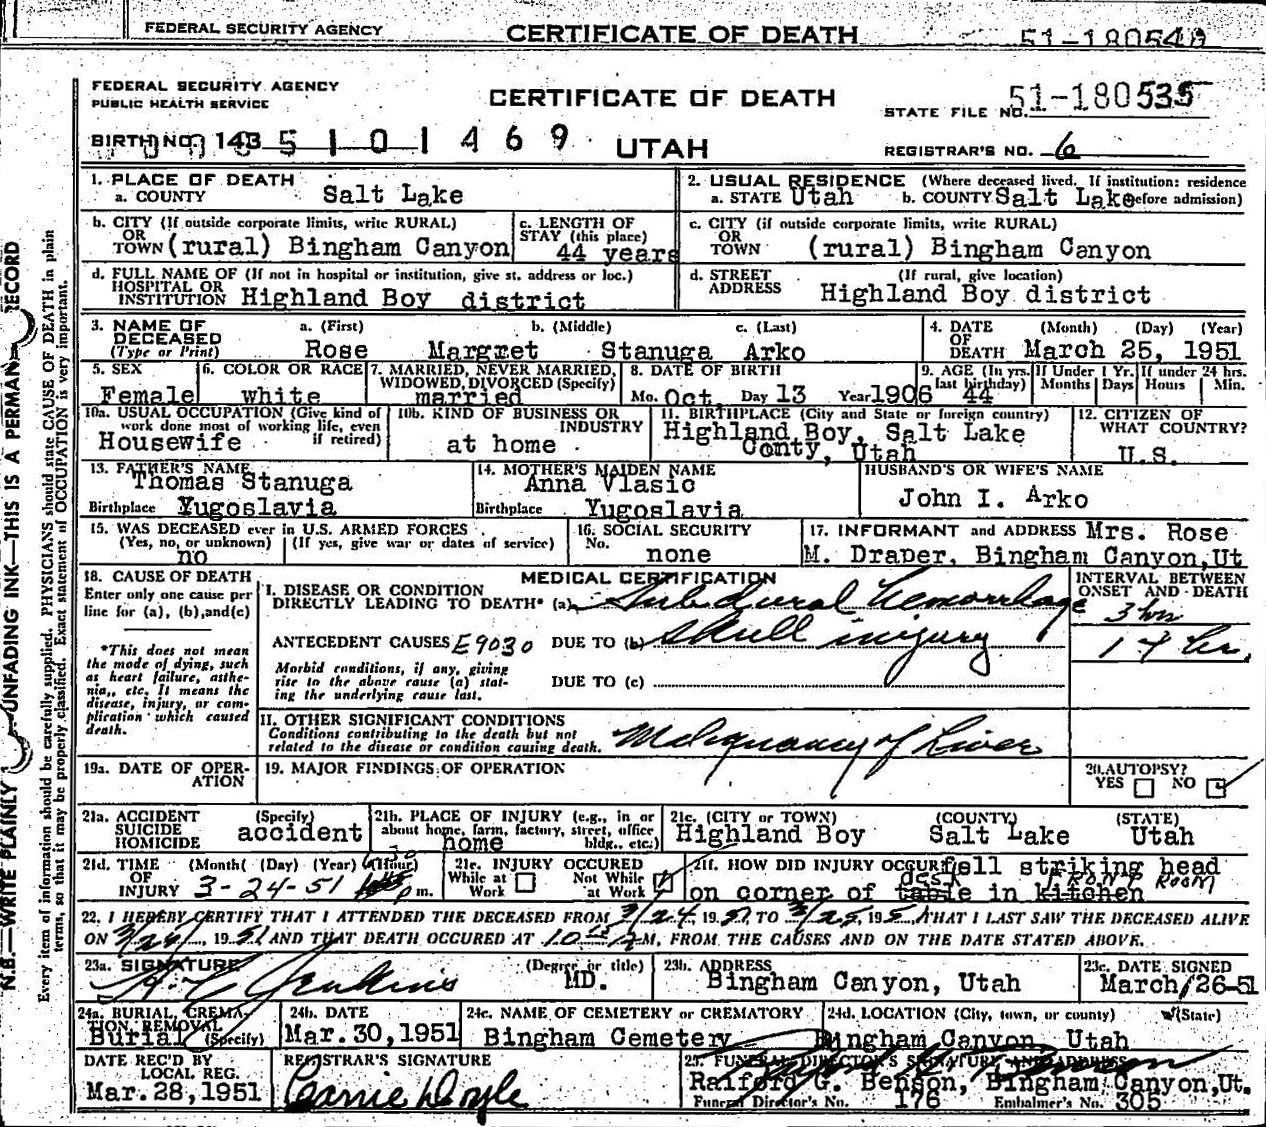 FEDERAL SECURITY AGENCY CERTIFICATE OF DEATH 51-180540
FEDERAL SECURITY AGENCY
PUBLIC HEALTH SERVICE
CERTIFICATE OF DEATH
STATE FILE NO. 51-180535
BIRTH NO. 143 5 1 0 1 4 6 9 UTAH REGISTRAR'S NO. 6
1. PLACE OF DEATH
a. COUNTY Salt Lake
2. USUAL RESIDENCE (Where deceased lived. If institution: residence before admission)
a. STATE Utah b. COUNTY Salt Lake
b. CITY (If outside corporate limits, write RURAL)
OR
TOWN (rural) Bingham Canyon
c. LENGTH OF
STAY (this place)
44 years
c. CITY (if outside corporate limits, write RURAL)
OR
TOWN (rural) Bingham Canyon
d. FULL NAME OF (If not in hospital or institution, give st. address or loc.)
HOSPITAL OR
INSTITUTION Highland Boy district
d. STREET (If rural, give location)
ADDRESS Highland Boy district
3. NAME OF
DECEASED
(Type or Print)
a. (First) b. (Middle) c. (Last)
Rose Margret Stanuga Arko
4. DATE (Month) (Day) (Year)
OF
DEATH March 25, 1951
5. SEX
Female
6. COLOR OR RACE
white
7. MARRIED, NEVER MARRIED,
WIDOWED, DIVORCED (Specify)
married
8. DATE OF BIRTH
Mo. Oct. Day 13 Year 1906
9. AGE (In yrs. last birthday)
44
If Under 1 Yr.
Months Days
If under 24 hrs.
Hours Min.
10a. USUAL OCCUPATION (Give kind of
work done most of working life, even
if retired)
Housewife
10b. KIND OF BUSINESS OR
INDUSTRY
at home
11. BIRTHPLACE (City and State or foreign country)
Highland Boy, Salt Lake
Conty, Utah
12. CITIZEN OF
WHAT COUNTRY?
U.S.
13. FATHER'S NAME
Thomas Stanuga
Birthplace Yugoslavia
14. MOTHER'S MAIDEN NAME
Anna Vlasic
Birthplace Yugoslavia
HUSBAND'S OR WIFE'S NAME
John I. Arko
15. WAS DECEASED ever in U.S. ARMED FORCES
(Yes, no, or unknown) (If yes, give war or dates of service)
no
16. SOCIAL SECURITY
No. none
17. INFORMANT and ADDRESS Mrs. Rose
M. Draper, Bingham Canyon, Ut
18. CAUSE OF DEATH
Enter only one cause per
line for (a), (b), and (c)
*This does not mean
the mode of dying, such
as heart failure, asthe-
nia, etc. It means the
disease, injury, or com-
plication which caused
death.
MEDICAL CERTIFICATION
I. DISEASE OR CONDITION
DIRECTLY LEADING TO DEATH* (a) Subdural hemorrhage
ANTECEDENT CAUSES E9030 DUE TO (b) Skull injury
Morbid conditions, if any, giving
rise to the above cause (a) stat-
ing the underlying cause last.
DUE TO (c)
INTERVAL BETWEEN
ONSET AND DEATH
3 hrs
II. OTHER SIGNIFICANT CONDITIONS
Conditions contributing to the death but not
related to the disease or condition causing death.
Malignancy of Liver
19a. DATE OF OPER-
ATION
19. MAJOR FINDINGS OF OPERATION
20. AUTOPSY?
YES NO
21a. ACCIDENT (Specify)
SUICIDE
HOMICIDE
accident
21b. PLACE OF INJURY (e.g., in or
about home, farm, factory, street, office
bldg., etc.)
home
21c. (CITY or TOWN) (COUNTY) (STATE)
Highland Boy Salt Lake Utah
21d. TIME (Month) (Day) (Year) (Hour)
OF
INJURY 3-24-51 m.
21e. INJURY OCCURED
While at Work
Not While at Work
21f. HOW DID INJURY OCCUR? fell striking head
on corner of table desk in kitchen FRONT ROOM
22. I HEREBY CERTIFY THAT I ATTENDED THE DECEASED FROM 3/24, 1951 TO 3/25, 1951 THAT I LAST SAW THE DECEASED ALIVE
ON 3/24, 1951 AND THAT DEATH OCCURED AT M, FROM THE CAUSES AND ON THE DATE STATED ABOVE.
23a. SIGNATURE (Degree or title)
Jenkins MD.
23b. ADDRESS
Bingham Canyon, Utah
23c. DATE SIGNED
March/26-51
24a. BURIAL, CREMA-
TION, REMOVAL
(Specify)
Burial
24b. DATE
Mar. 30, 1951
24c. NAME OF CEMETERY or CREMATORY
Bingham Cemetery
24d. LOCATION (City, town, or county) (State)
Bingham Canyon, Utah
DATE REC'D BY
LOCAL REG.
Mar. 28, 1951
REGISTRAR'S SIGNATURE
Carrie Doyle
25. FUNERAL DIRECTOR'S SIGNATURE AND ADDRESS
Raiford G. Benson, Bingham Canyon, Ut.
Funeral Director's No. 176 Embalmer's No. 305
N.B.—WRITE PLAINLY UNFADING INK—THIS IS A PERMANENT RECORD
Every item of information should be carefully supplied. PHYSICIANS should state CAUSE OF DEATH in plain
terms, so that it may be properly classified. Exact statement of OCCUPATION is very important.